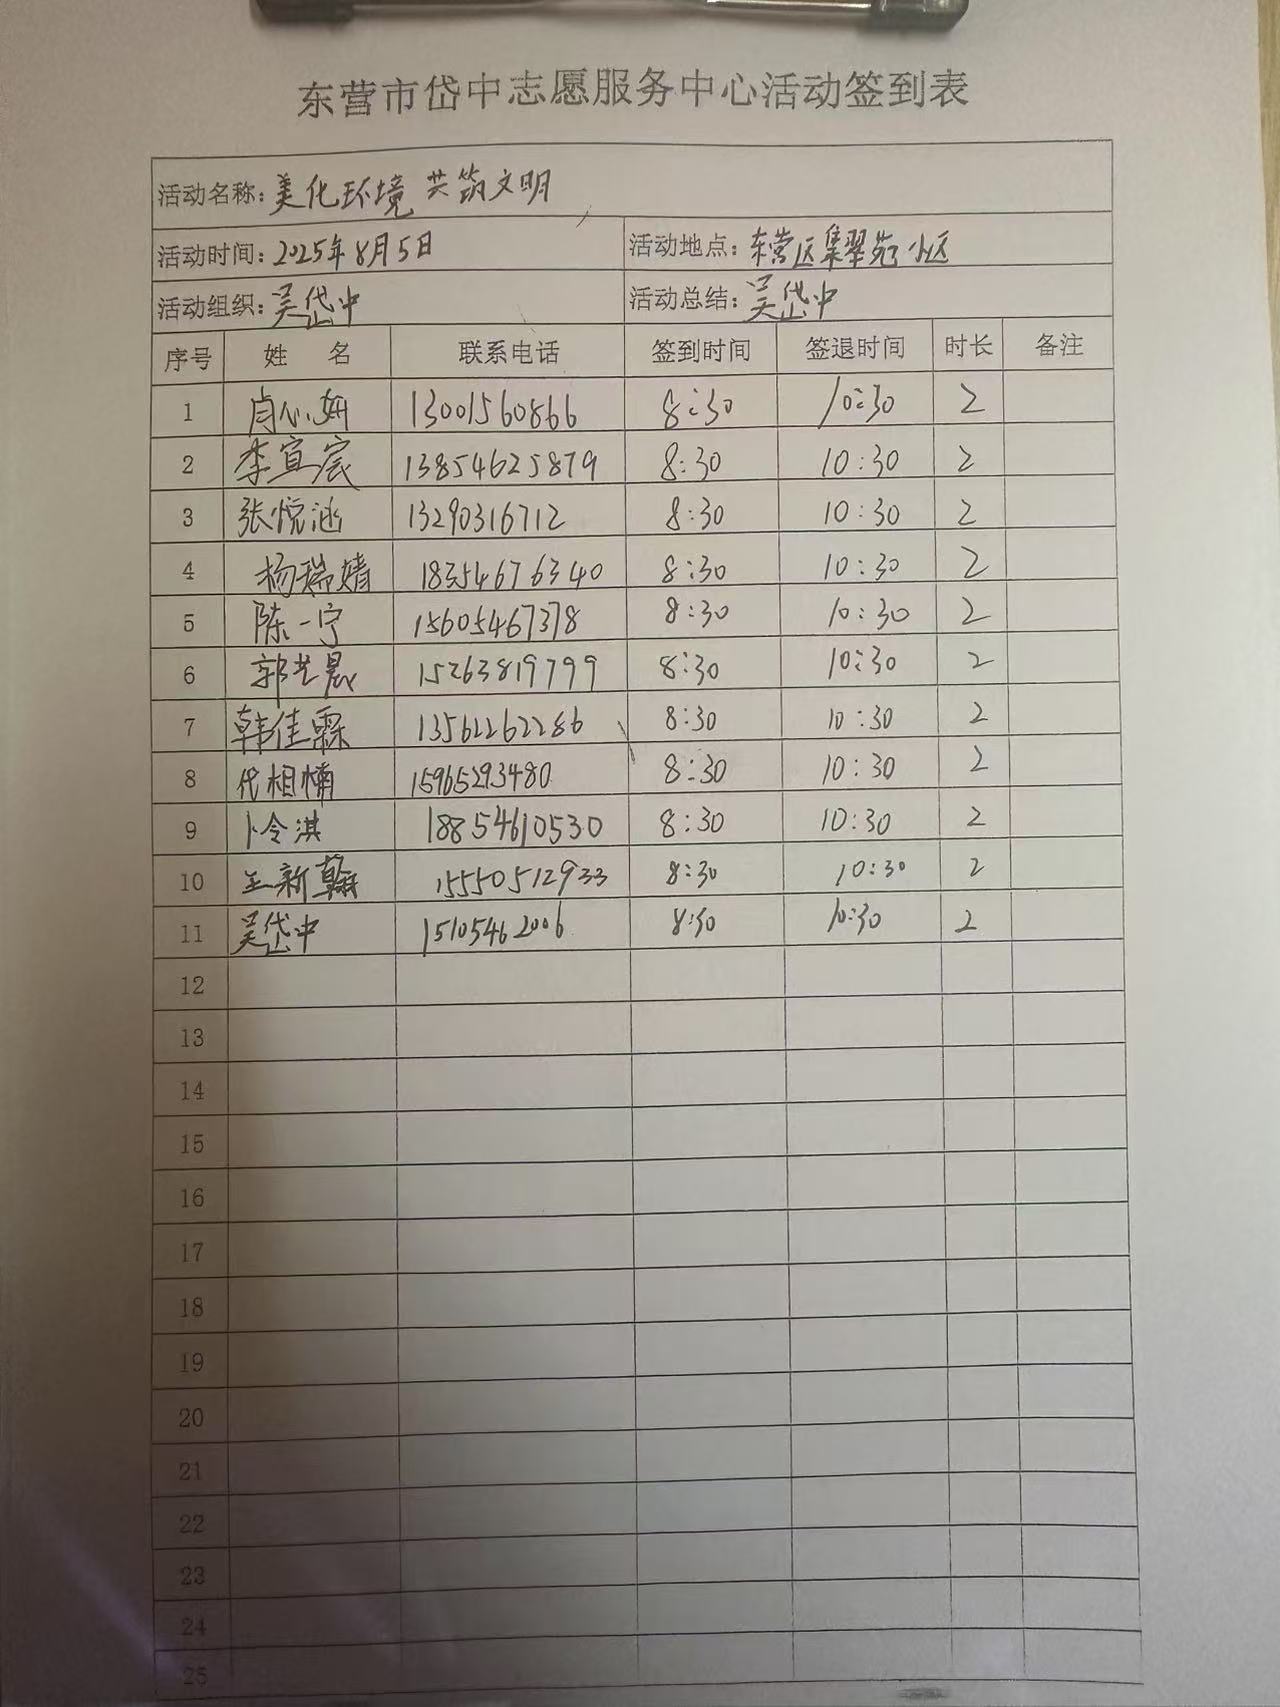 东营市岱中志愿服务中心活动签到表
活动名称：美化环境 共筑文明
活动时间：2025年8月5日 活动地点：东营区集翠苑小区
活动组织：吴岱中 活动总结：吴岱中
序号 姓 名 联系电话 签到时间 签退时间 时长 备注
1 肖心妍 13001560866 8:30 10:30 2
2 李宜宸 13854625879 8:30 10:30 2
3 张悦涵 13290316712 8:30 10:30 2
4 杨瑞婧 18354676340 8:30 10:30 2
5 陈一宁 15605467378 8:30 10:30 2
6 郭艺晨 15263819799 8:30 10:30 2
7 韩佳霖 13562262286 8:30 10:30 2
8 代相楠 15965293480 8:30 10:30 2
9 卜令淇 18854610530 8:30 10:30 2
10 王新翰 15550512933 8:30 10:30 2
11 吴岱中 15105462006 8:30 10:30 2
12
13
14
15
16
17
18
19
20
21
22
23
24
25